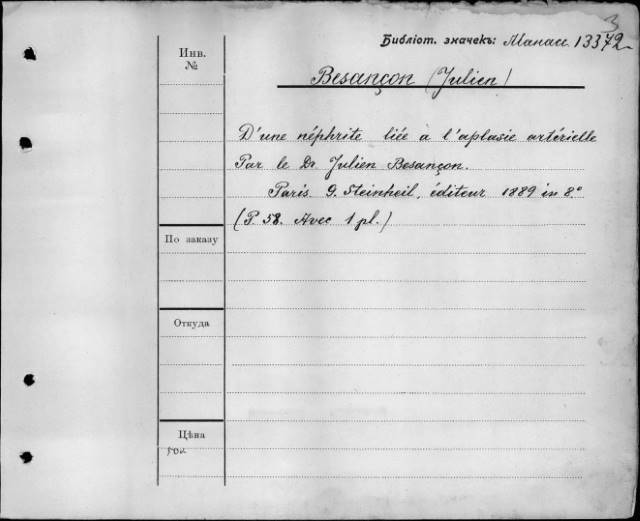 3
Библіот. значекъ: Манасс. 13372
Инв.
№
Besançon (Julien)
D'une néphrite liée à l'aplasie artérielle
Par le Dr. Julien Besançon.
Paris. G. Steinheil, éditeur 1889 in 8.°
(P. 58. Avec 1 pl.)
По заказу
Откуда
Цѣна